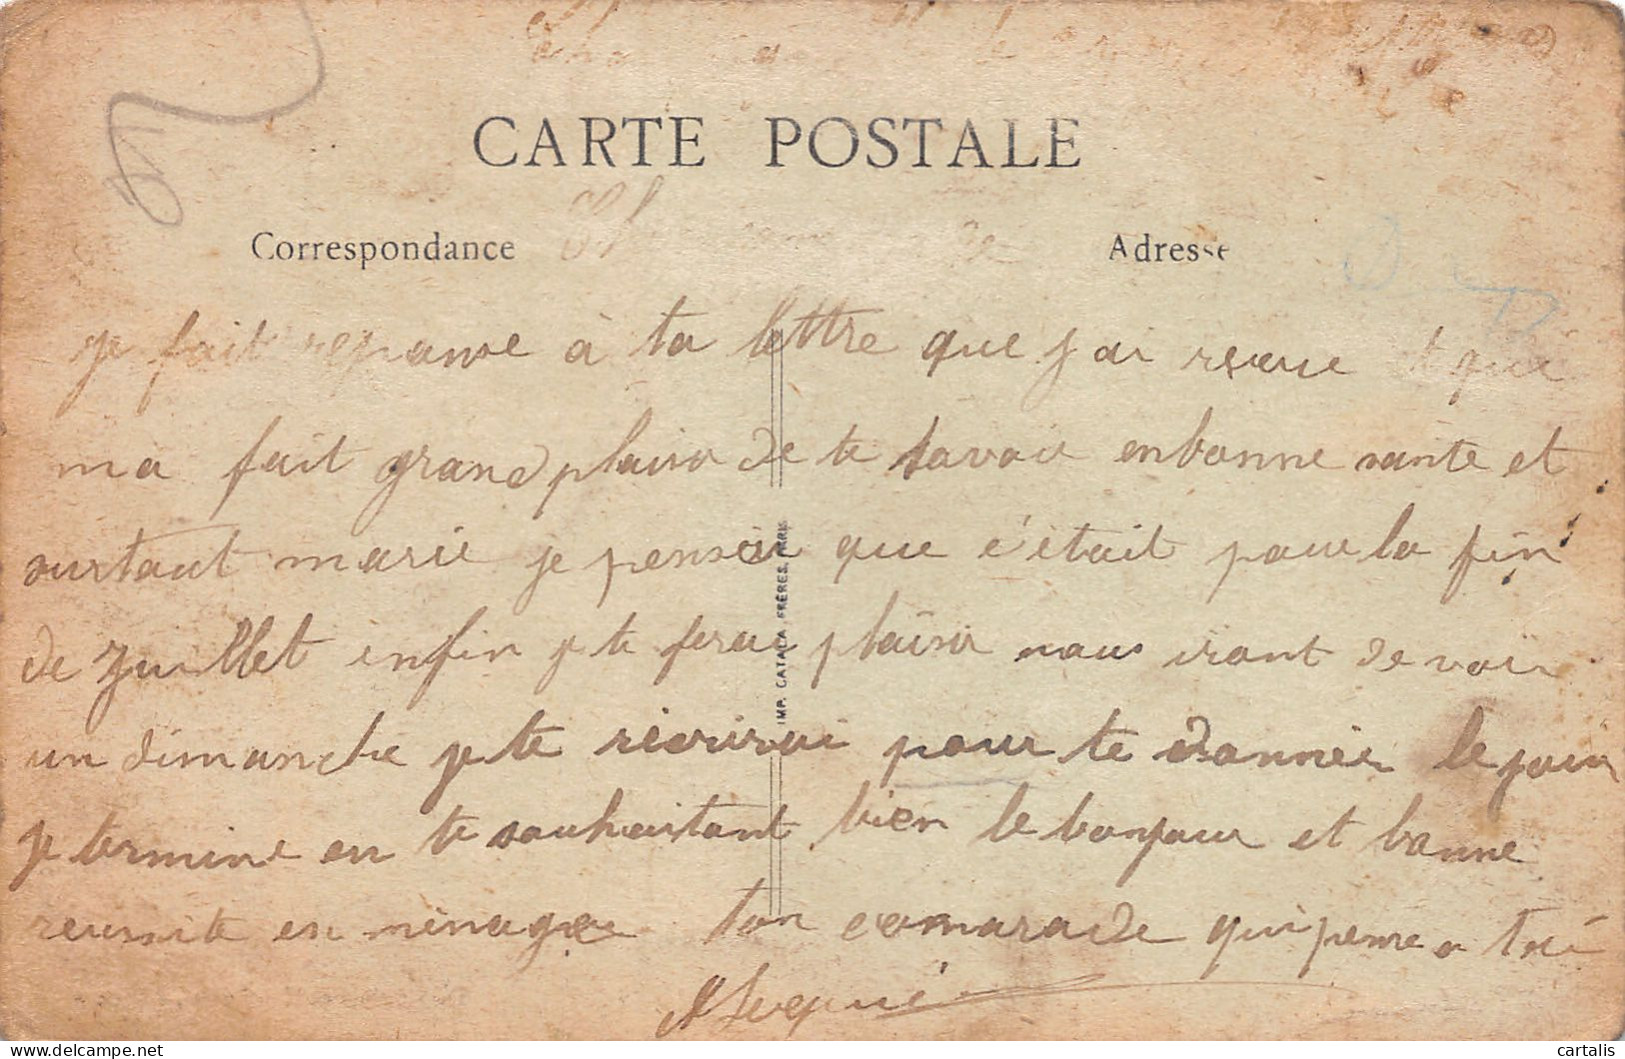 CARTE POSTALE
Correspondance
Adresse
je fait reponse à ta lettre que j ai reçue que
ma fait grand plaisir de te savoir en bonne sante et
surtout marie je pensai que c'était pour la fin
de juillet enfin je te ferai plaisir nous iront de voir
un dimanche je te riécrirai pour te donnée le jour
je termine en te souhaitant bien le bonjour et bonne
reussite en ménage ton camarade qui pense a toi
IMP. CATALA FRÈRES, PARIS
cartalis